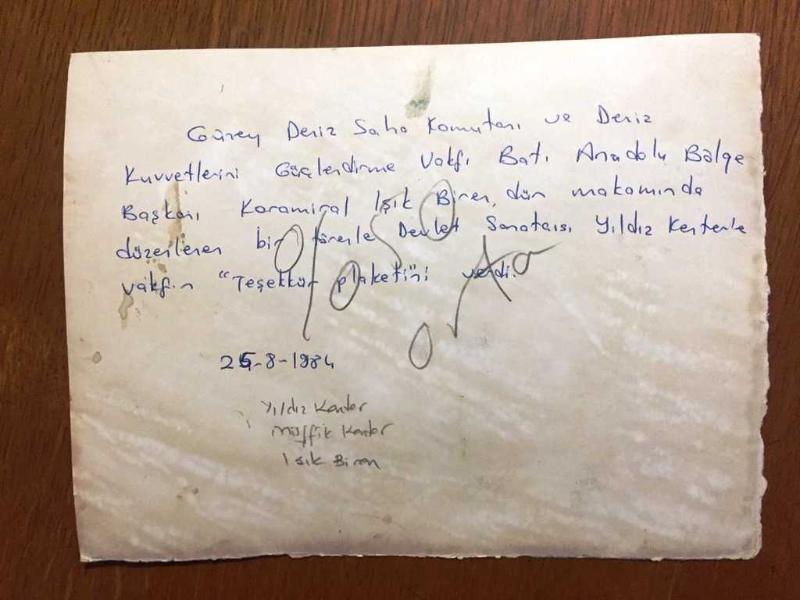 Güney Deniz Saha Komutanı ve Deniz
Kuvvetlerini Güçlendirme Vakfı Batı Anadolu Bölge
Başkanı Koramiral Işık Biren, dün makamında
düzenlenen bir törenle Devlet Sanatçısı Yıldız Kenter'e
vakfın "Teşekkür plaketi"ni verdi.
25-8-1984
Yıldız Kenter
Müşfik Kenter
Işık Biren